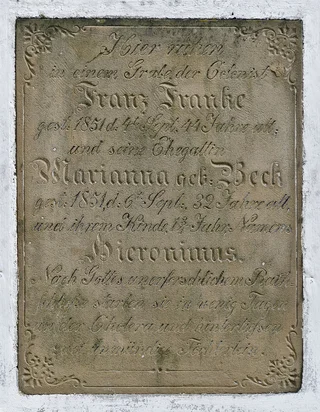 Hier ruhen
in einem Grabe der Colonist
Franz Franke
gest. 1851 d. 4t Sept. 41 Jahre alt,
und seine Ehegattin
Marianna geb. Beck
gest. 1851 d. 6t Sept. 32 Jahre alt,
und ihrem Kinde, Jahr, Namens
Hieronimus.
Nach Gottes unerforschlichem Rath
starben sie in wenig Tagen
an der Cholera und hinterließen